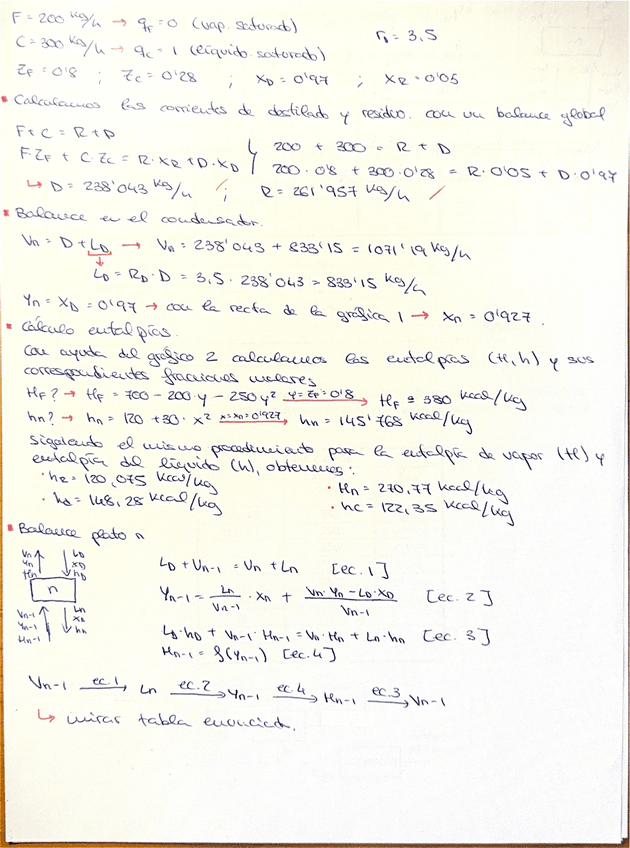 F = 200 kg/h → qF = 0 (vap. saturado)
r0 = 3,5
C = 300 kg/h → qc = 1 (líquido saturado)
ZF = 0'8 ; Zc = 0'28 ; XD = 0'97 ; XR = 0'05
Calculamos las corrientes de destilado y residuo. con un balance global
F + C = R + D
200 + 300 = R + D
F·ZF + C·Zc = R·XR + D·XD
200·0'8 + 300·0'28 = R·0'05 + D·0'97
↳ D = 238'043 kg/h ; R = 261'957 kg/h
Balance en el condensador.
Vn = D + LD → Vn = 238'043 + 833'15 = 1071'19 kg/h
LD = RD·D = 3,5·238'043 = 833'15 kg/h
Yn = XD = 0'97 → con la recta de la gráfica 1 → Xn = 0'927.
Cálculo entalpías.
Con ayuda del gráfico 2 calculamos las entalpías (H, h) y sus
correspondientes fracciones molares
HF? → HF = 700 - 200·y - 250y² y = ZF = 0'8 → HF ≅ 380 kcal/kg
hn? → hn = 120 + 30·x² x = xn = 0'927 → hn = 145'768 kcal/kg
Siguiendo el mismo procedimiento para la entalpía de vapor (H) y
entalpía del líquido (h), obtenemos:
· hR = 120,075 kcal/kg
· Hn = 270,77 kcal/kg
· hd = 148,28 kcal/kg
· hc = 122,35 kcal/kg
Balance plato n
Vn Yn Hn
LD XD hD
n
Vn-1 Yn-1 Hn-1
Ln xn hn
LD + Vn-1 = Vn + Ln [ec. 1]
Yn-1 = Ln/Vn-1 · Xn + (Vn·Yn - LD·XD)/Vn-1 [ec. 2]
LD·hD + Vn-1·Hn-1 = Vn·Hn + Ln·hn [ec. 3]
Hn-1 = f(Yn-1) [ec. 4]
Vn-1 ec.1→ Ln ec.2→ Yn-1 ec.4→ Hn-1 ec.3→ Vn-1
↳ mirar tabla enunciado.